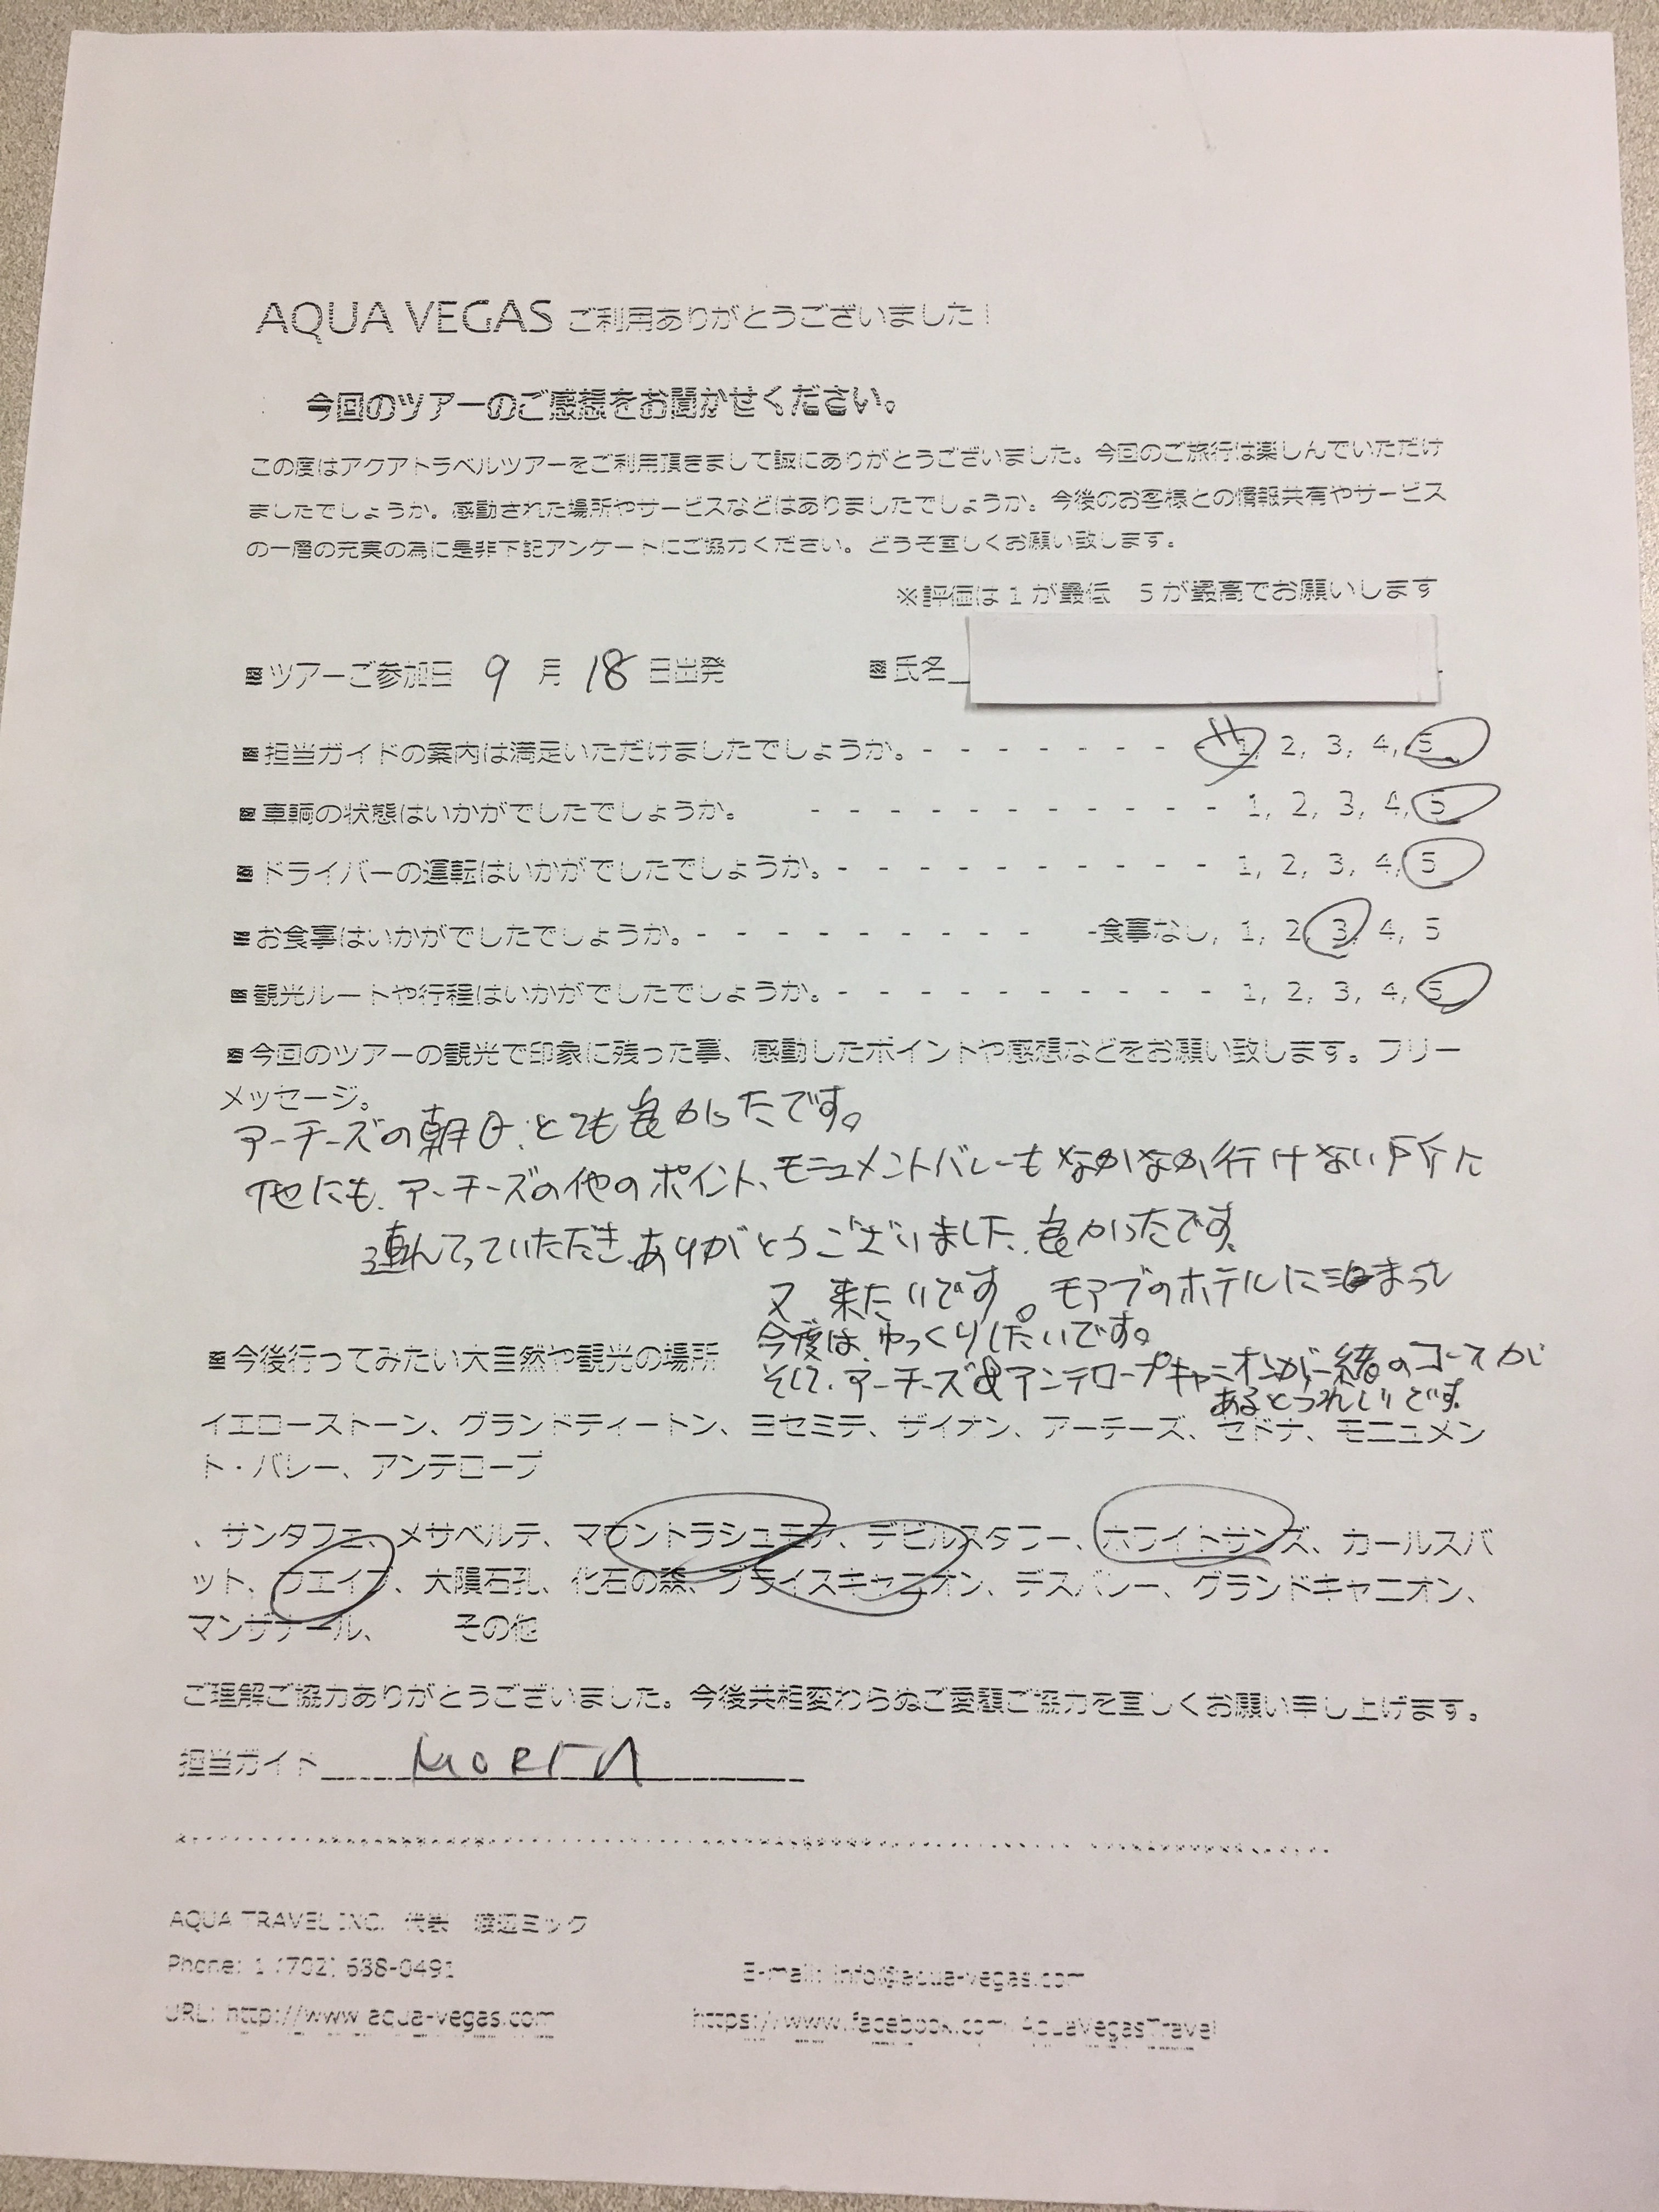 AQUA VEGAS ご利用ありがとうございました！
今回のツアーのご感想をお聞かせください。
この度はアクアトラベルツアーをご利用頂きまして誠にありがとうございました。今回のご旅行は楽しんでいただけ
ましたでしょうか。感動された場所やサービスなどはありましたでしょうか。今後のお客様との情報共有やサービス
の一層の充実の為に是非下記アンケートにご協力ください。どうぞ宜しくお願い致します。
※評価は 1 が最低　5 が最高でお願いします
■ツアーご参加日 9 月 18 日出発　■氏名
■担当ガイドの案内は満足いただけましたでしょうか。- - - - - - - - 1, 2, 3, 4, 5
■車輌の状態はいかがでしたでしょうか。 - - - - - - - - - - - 1, 2, 3, 4, 5
■ドライバーの運転はいかがでしたでしょうか。- - - - - - - - - - - 1, 2, 3, 4, 5
■お食事はいかがでしたでしょうか。- - - - - - - - - - -食事なし, 1, 2, 3, 4, 5
■観光ルートや行程はいかがでしたでしょうか。- - - - - - - - - - - 1, 2, 3, 4, 5
■今回のツアーの観光で印象に残った事、感動したポイントや感想などをお願い致します。フリー
メッセージ。
アーチーズの朝日、とても良かったです。
他にも、アーチーズの他のポイント、モニュメントバレーもなかなか行けない所に
連れてっていただき、ありがとうございました、良かったです。
又、来たいです。モアブのホテルに泊まって
今度は、ゆっくりしたいです。
そして、アーチーズ&アンテロープキャニオンが一緒のコースが
あるとうれしいです。
■今後行ってみたい大自然や観光の場所
イエローストーン、グランドティートン、ヨセミテ、ザイオン、アーチーズ、セドナ、モニュメン
ト・バレー、アンテロープ
、サンタフェ、メサベルデ、マウントラシュモア、デビルスタワー、ホワイトサンズ、カールスバ
ット、ウエイブ、大隕石孔、化石の森、ブライスキャニオン、デスバレー、グランドキャニオン、
マンザナール、　　その他
ご理解ご協力ありがとうございました。今後共相変わらぬご愛顧ご協力を宜しくお願い申し上げます。
担当ガイド
AQUA TRAVEL INC. 代表　渡辺ミック
Phone: 1 (702) 638-0491　E-mail: info@aqua-vegas.com
URL: http://www.aqua-vegas.com　https://www.facebook.com/AquaVegasTravel